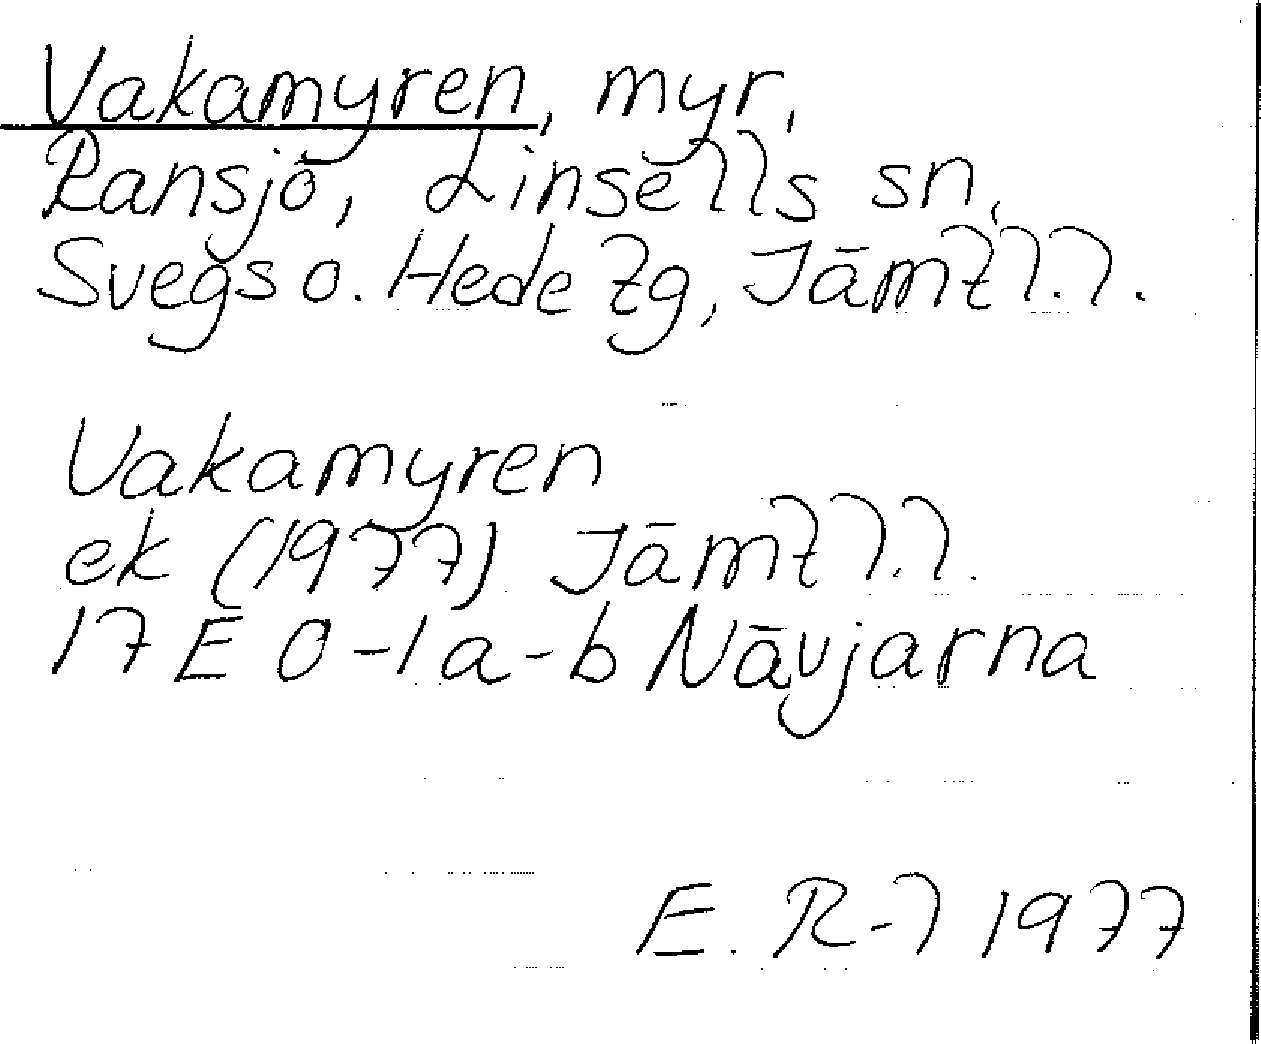 Vakamyren, myr,
Ransjö, Linsells sn,
Svegs o. Hede tg, Jämtl.l.
Vakamyren
ek (1977) Jämtl.l.
17 E 0-1 a-b Nävjarna
E. R-l 1977